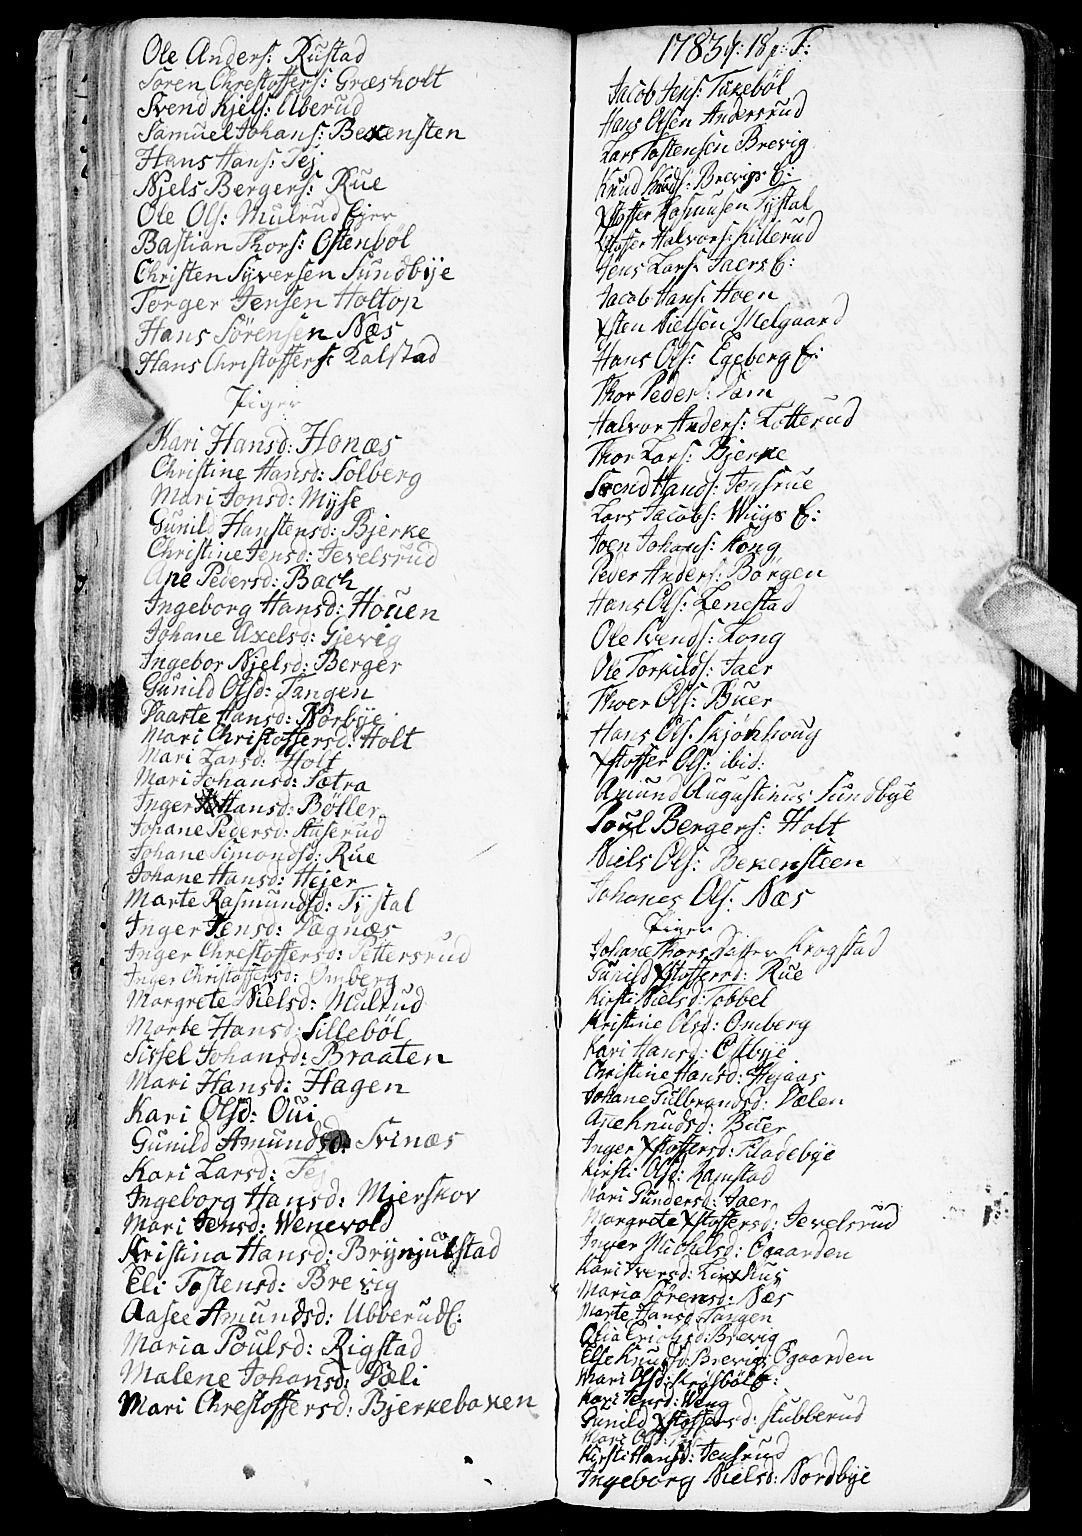 Ole Anders: Rustad
Søren Chrestoffers: Græsholt
Svend Kjels: Uberud
Samuel Johans: Bexensten
Hans Hans: Tej
Njels Bergers: Rue
Ole Ols: Mulrud Ejer
Bastian Thors: Ostenbøl
Christen Syversen Sundbÿe
Torger Jensen Holtop
Hans Sørensen Næs
Hans Christoffers: Kalstad
Piger
Kari Hansd: Honæs
Christine Hansd: Solberg
Mari Jonsd: Mÿse
Gunild Hanstensd: Bjerke
Christine Jensd: Jevelsrud
Ane Pedersd: Bach
Ingeborg Hansd: Houen
Johane Axelsd: Gjevig
Ingebor Njelsd: Berger
Gunild Olsd: Tangen
Maarte Hansd: Norbÿe
Mari Christoffersd: Holt
Mari Larsd: Holt
Mari Johansd: Sætra
Inger Hansd: Bøller
Johane Pedersd: Staserud
Johane Simonsd: Rue
Johane Hansd: Hejer
Marte Rasmundsd: Tÿstal
Inger Jensd: Vægnæs
Inger Chrestoffersd: Pettersrud
Inger Christoffersd: Omberg
Margrete Nielsd: Mulrud
Marte Hansd: Sillebøl
Sissel Johansd: Braaten
Mari Hansd: Hagen
Kari Olsd: Oui
Gunild Amundsd: Svinæs
Kari Larsd: Tej
Ingeborg Hansd: Mjerskov
Mari Jensd: Wenevold
Kristina Hansd: Brÿnjulstad
Eli Tostensd: Brevig
Aasee Amundsd: Ubberud E:
Maria Poulsd: Rigstad
Malene Johansd: Pæli
Mari Chrestoffersd: Bjerkebaken
1783 d: 18 p: T:
Jacob Jens: Taxebøl
Hans Olsen Andersrud
Lars Tostensen Brevig
Knud Knuds: Brevigs E:
Xstoffer Rasmusen Tÿstal
Xstoffer Halvors: Killerud
Jens Lars: Jaers E:
Jacob Hans: Hoen
Xsten Nielsen Melgaard
Hans Ols: Egeberg E:
Thor Peders: Dam
Halvor Anders: Kotterud
Thor Lars: Bjerke
Svend Hans: Jensrue
Lars Jacobs: Wiigs E:
Joen Johans: Kong
Peder Anders: Borgen
Hans Ols: Lenestad
Ole Svends: Kong
Ole Torkilds: Jaer
Thoer Ols: Buer
Hans Ols: Skjønhoug
Xstoffer Ols: ibid:
Amund Augustinus Sundbÿe
Poul Bergers: Holt
Niels Ols: Bexensteen
Johanes Ols: Næs
Piger
Johane Thors Datter Krogstad
Gunild Xstoffersd: Rue
Kirsti Nielsd: Tobbel
Kristine Olsd: Omberg
Kari Hansd: Ostbÿe
Christine Hansd: Hejaas
Johane Gulbrandsd: Dælen
Ane Knudsd: Buer
Inger Xstoffersd: Kladebÿe
Kirsti Olsd: Ramstad
Mari Gundersd: Jaer
Margrete Xstoffersd: Jevelsrud
Inger Michelsd: Ogaarden
Kari Iversd: Kirkhus
Maria Sørensd: Næs
Marte Hansd: Tangen
Olia Erichsd: Brevig
Else Knudsd: Brevigs Ogaarden
Mari Olsd: Krosbøl E:
Kari Jensd: Weng
Gunild Xstoffersd: Skubberud
Mari Olsd:
Kirsti Hansd: Jensrud
Ingeborg Nielsd: Nordbÿe